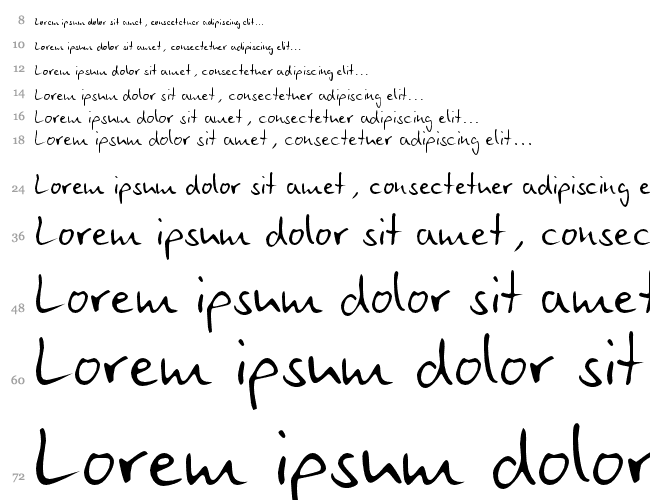 8 Lorem ipsum dolor sit amet , consectetuer adipiscing elit...
10 Lorem ipsum dolor sit amet , consectetuer adipiscing elit...
12 Lorem ipsum dolor sit amet , consectetuer adipiscing elit...
14 Lorem ipsum dolor sit amet , consectetuer adipiscing elit...
16 Lorem ipsum dolor sit amet , consectetuer adipiscing elit...
18 Lorem ipsum dolor sit amet , consectetuer adipiscing elit...
24 Lorem ipsum dolor sit amet , consectetuer adipiscing e
36 Lorem ipsum dolor sit amet , consec
48 Lorem ipsum dolor sit amet
60 Lorem ipsum dolor sit
72 Lorem ipsum dolor